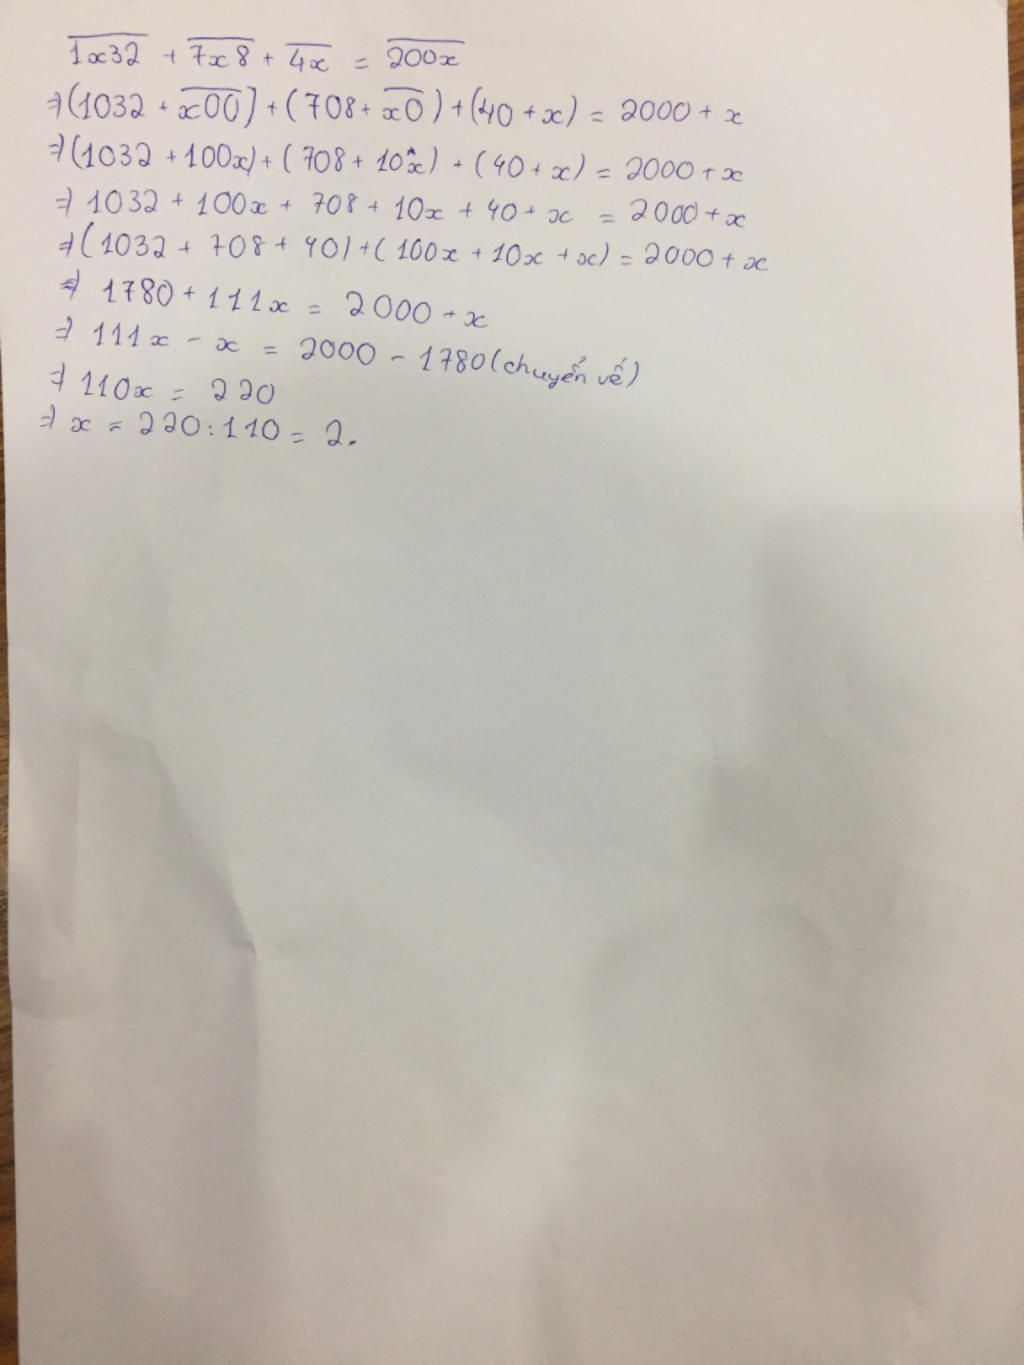 1x32 + 7x8 + 4x = 200x
=> (1032 + x00) + (708 + x0) + (40 + x) = 2000 + x
=> (1032 + 100x) + (708 + 10x) + (40 + x) = 2000 + x
=> 1032 + 100x + 708 + 10x + 40 + x = 2000 + x
=> (1032 + 708 + 40) + (100x + 10x + x) = 2000 + x
=> 1780 + 111x = 2000 + x
=> 111x - x = 2000 - 1780 (chuyển vế)
=> 110x = 220
=> x = 220 : 110 = 2.